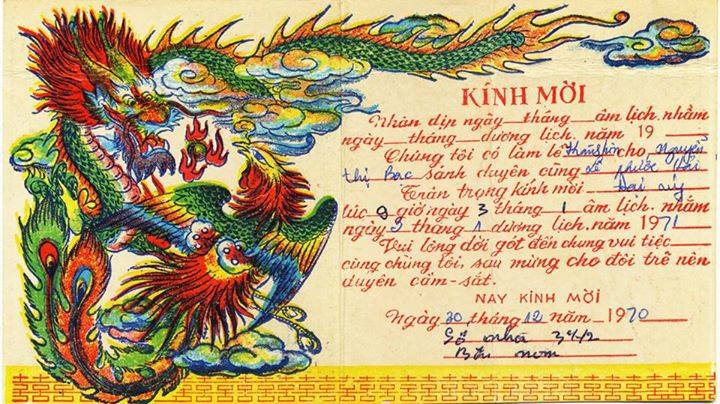 KÍNH MỜI
Nhân dịp ngày tháng âm lịch, nhằm
ngày tháng dương lịch, năm 19
Chúng tôi có làm lễ cho Nguyễn
thị Bạc sánh duyên cùng Lê phước
Trân trọng kính mời Đại úy
lúc 8 giờ ngày 3 tháng 1 âm lịch. nhằm
ngày tháng 1 dương lịch. năm 1971
Vui lòng dời gót đến chung vui tiệc
cùng chúng tôi, sau mừng cho đôi trẻ nên
duyên cầm-sắt.
NAY KÍNH MỜI
Ngày 30 tháng 12 năm 1970
Số nhà
Bến